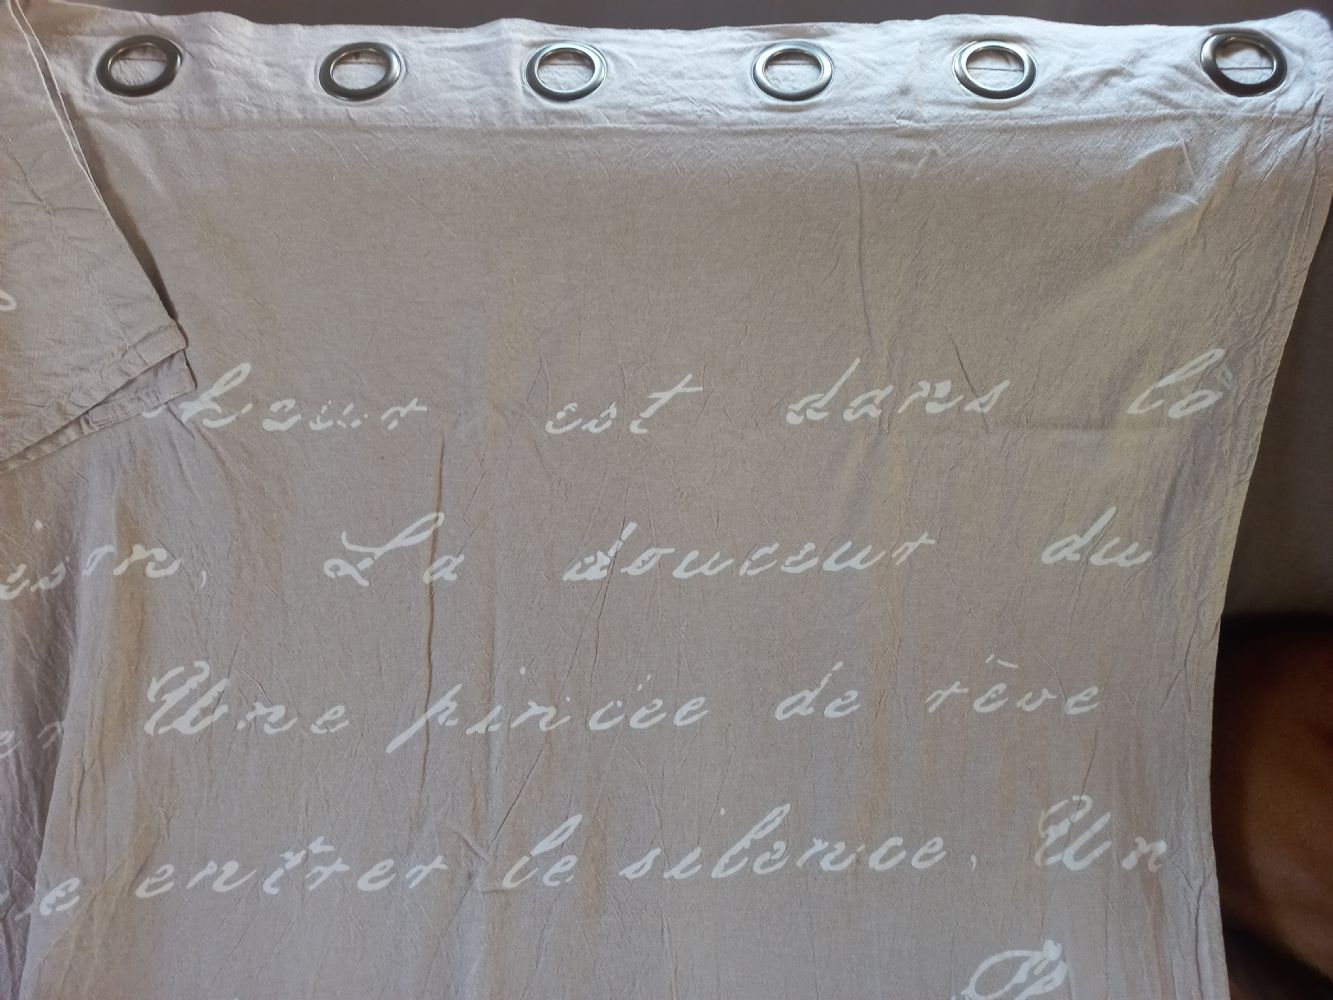 est dans la
La douceur du
Une pincée de rêve
entrer le silence. Un